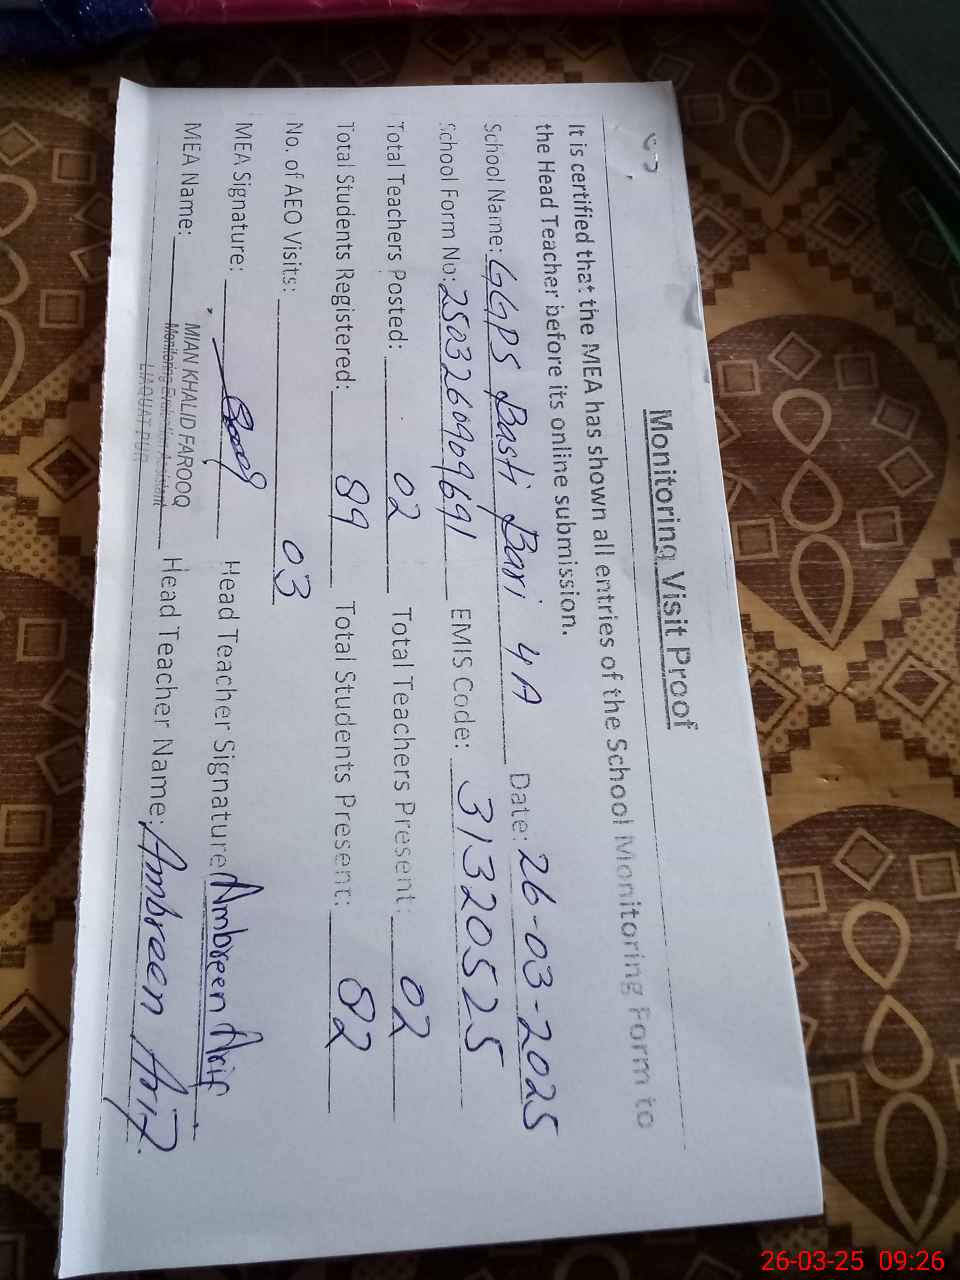 Monitoring Visit Proof
It is certified that the MEA has shown all entries of the School Monitoring Form to
the Head Teacher before its online submission.
School Name: GGPS Basti Bari 4A Date: 26-03-2025
School Form No: 2503260909691 EMIS Code: 31320525
Total Teachers Posted: 02 Total Teachers Present: 02
Total Students Registered: 89 Total Students Present: 82
No. of AEO Visits: 03
MEA Signature: Head Teacher Signature Ambreen Arif
MEA Name: MIAN KHALID FAROOQ Head Teacher Name: Ambreen Arif
Monitoring Evaluation Assistant
LIAQUAT PUR
26-03-25 09:26